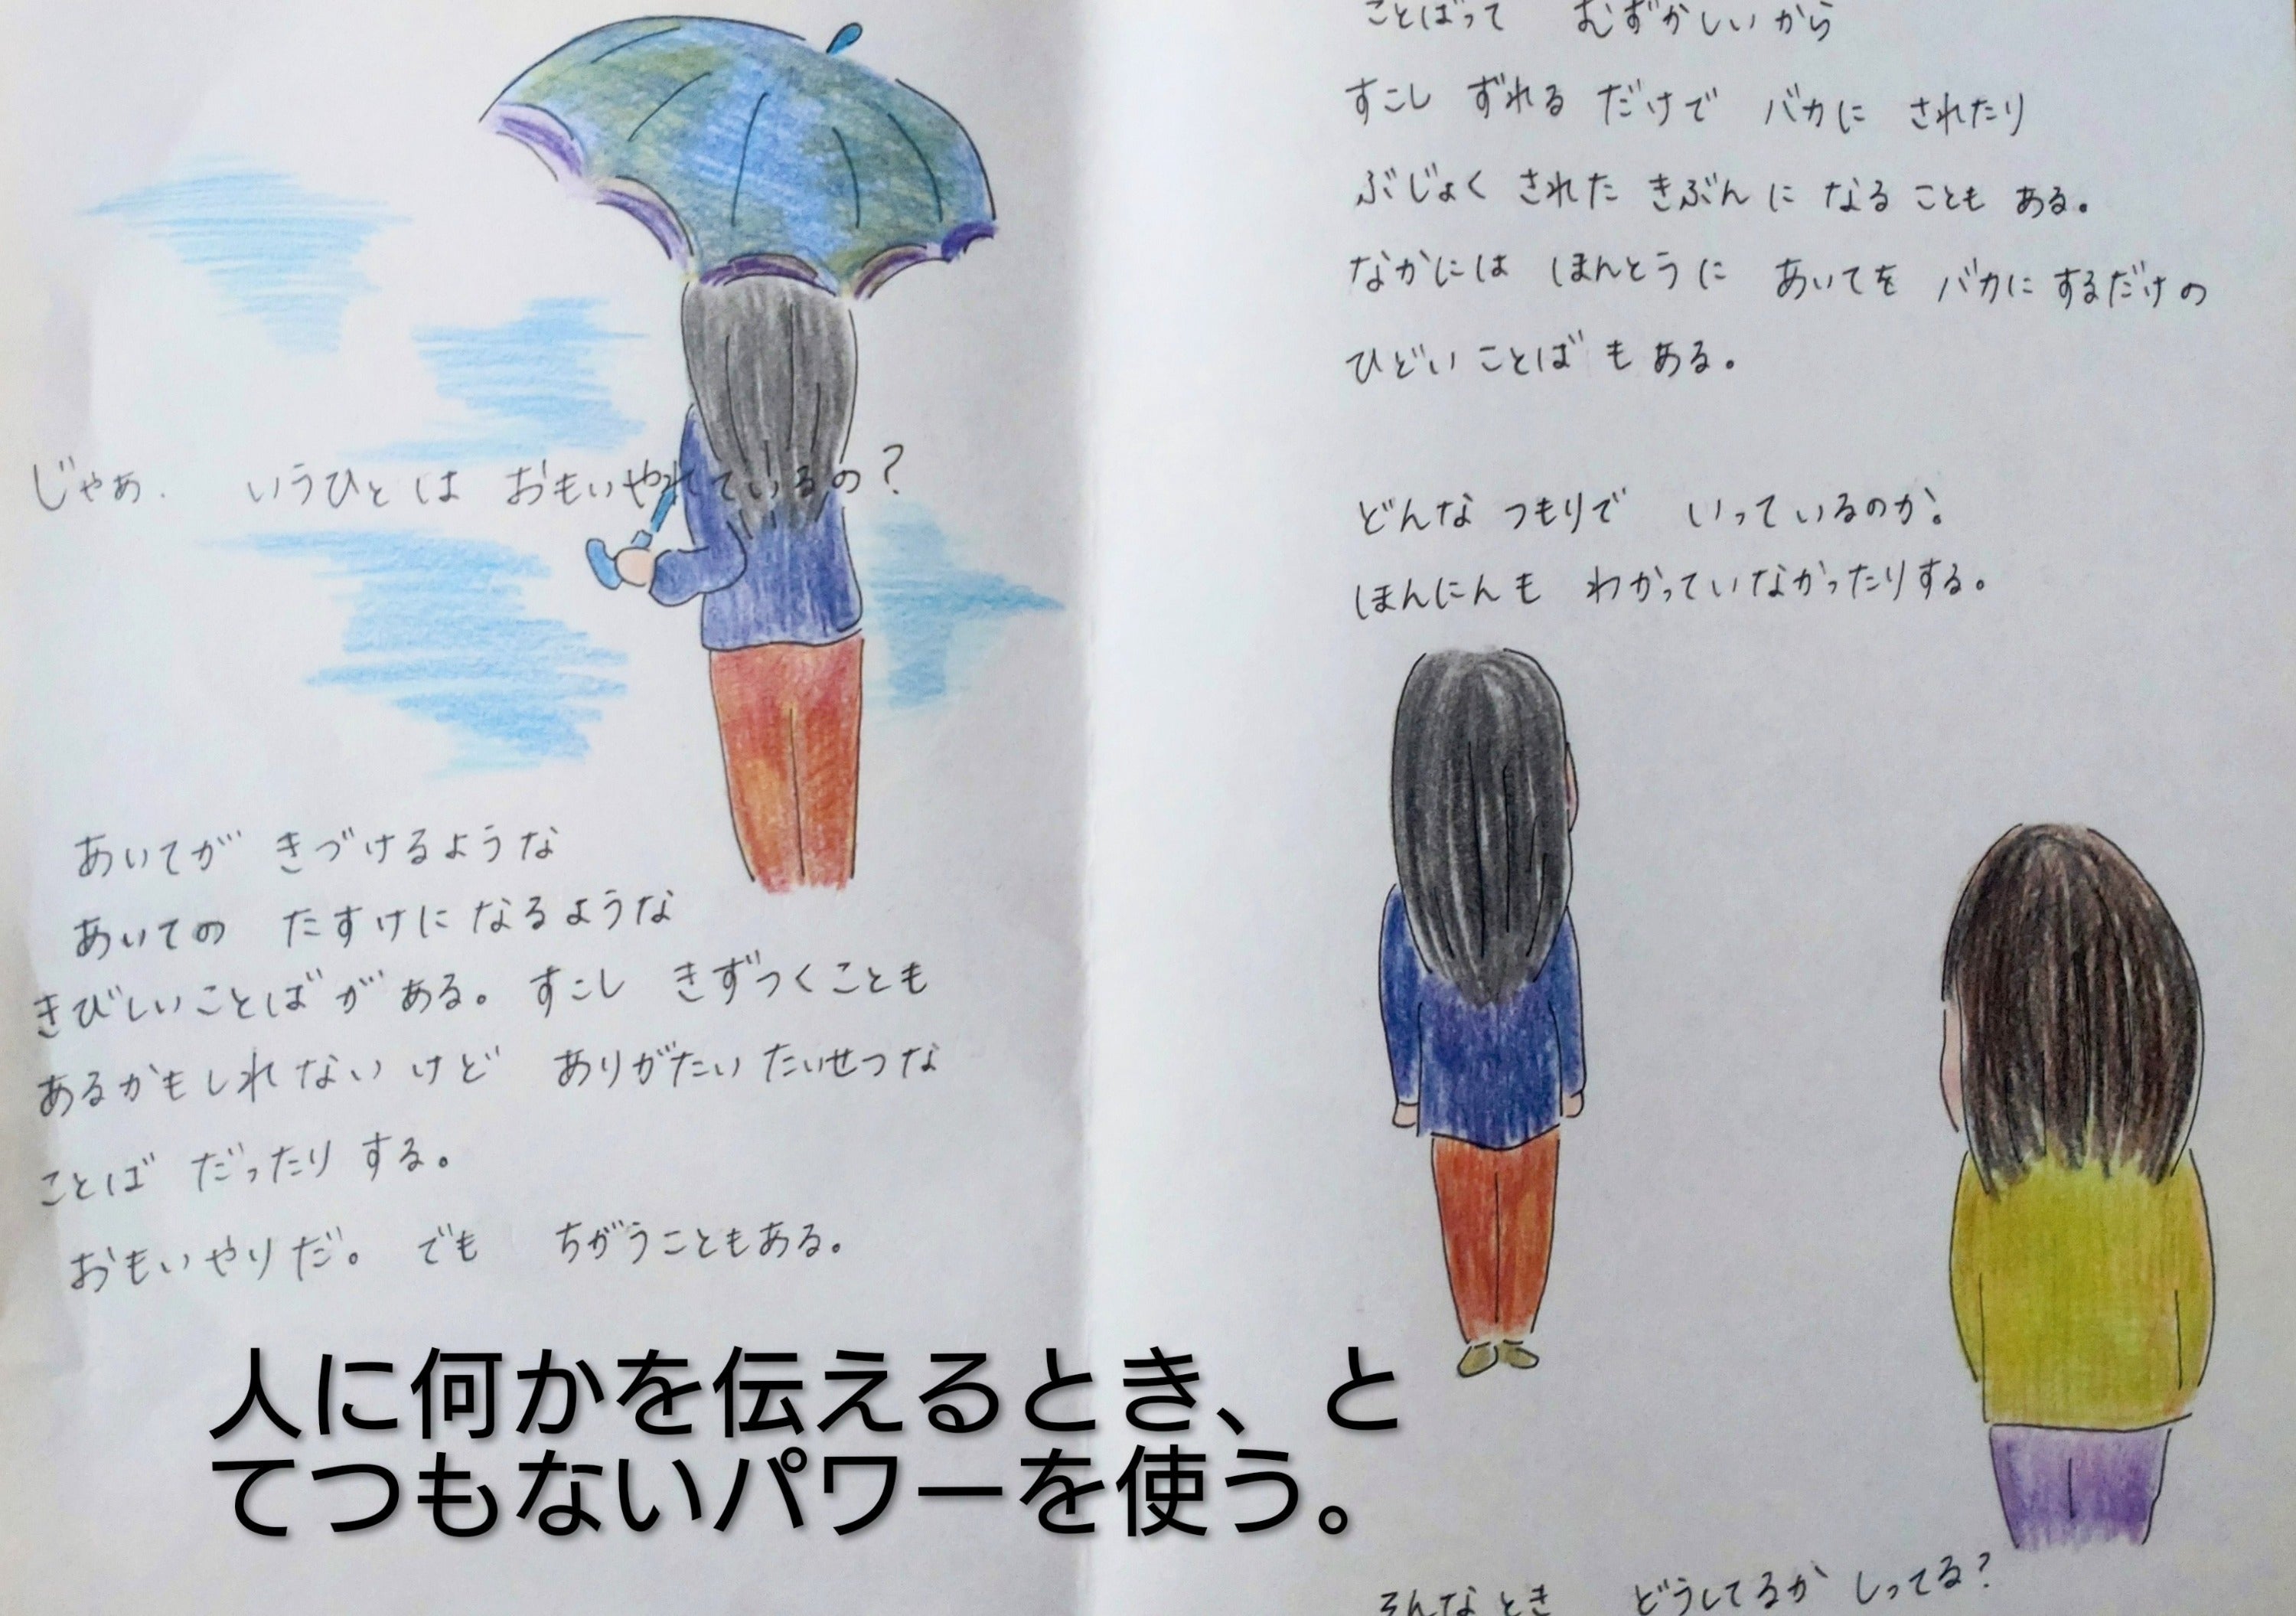 じゃあ、 いうひとは おもいやれているの？
あいてが きづけるような
あいての たすけになるような
きびしいことばが ある。すこし きずつくことも
あるかもしれないけど ありがたい たいせつな
ことば だったりする。
おもいやりだ。 でも ちがうこともある。
ことばって むずかしいから
すこし ずれる だけで バカに されたり
ぶじょく された きぶんに なることも ある。
なかには ほんとうに あいてを バカにするだけの
ひどい ことばも ある。
どんな つもりで いっているのか。
ほんにんも わかっていなかったりする。
そんなとき どうしてるか しってる？
人に何かを伝えるとき、と
てつもないパワーを使う。